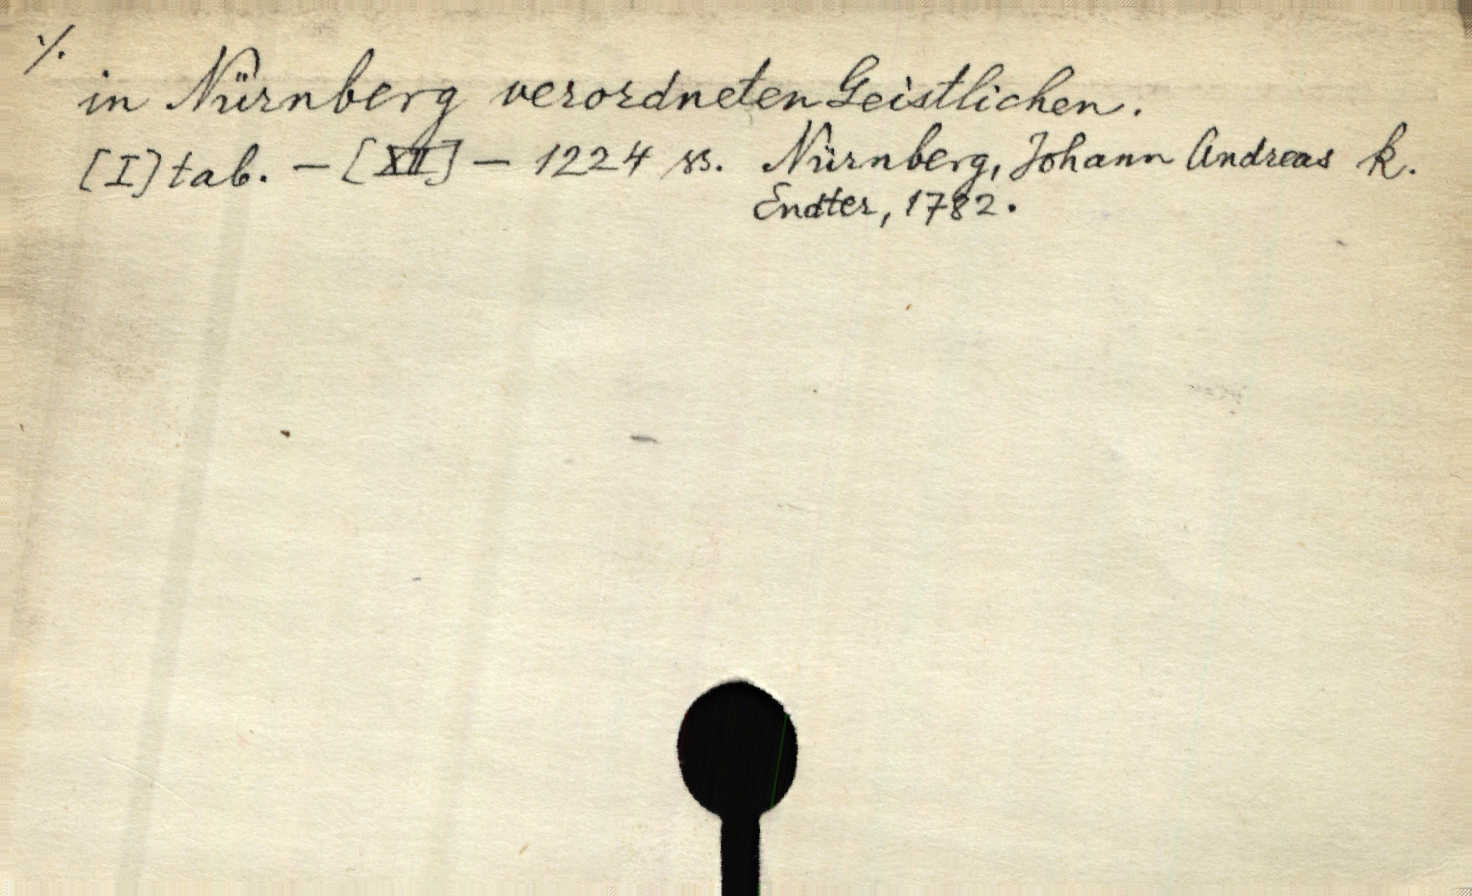 ./.
in Nürnberg verordneten Geistlichen.
[I] tab. — [XII] — 1224 ss. Nürnberg, Johann Andreas k.
Endter, 1782.